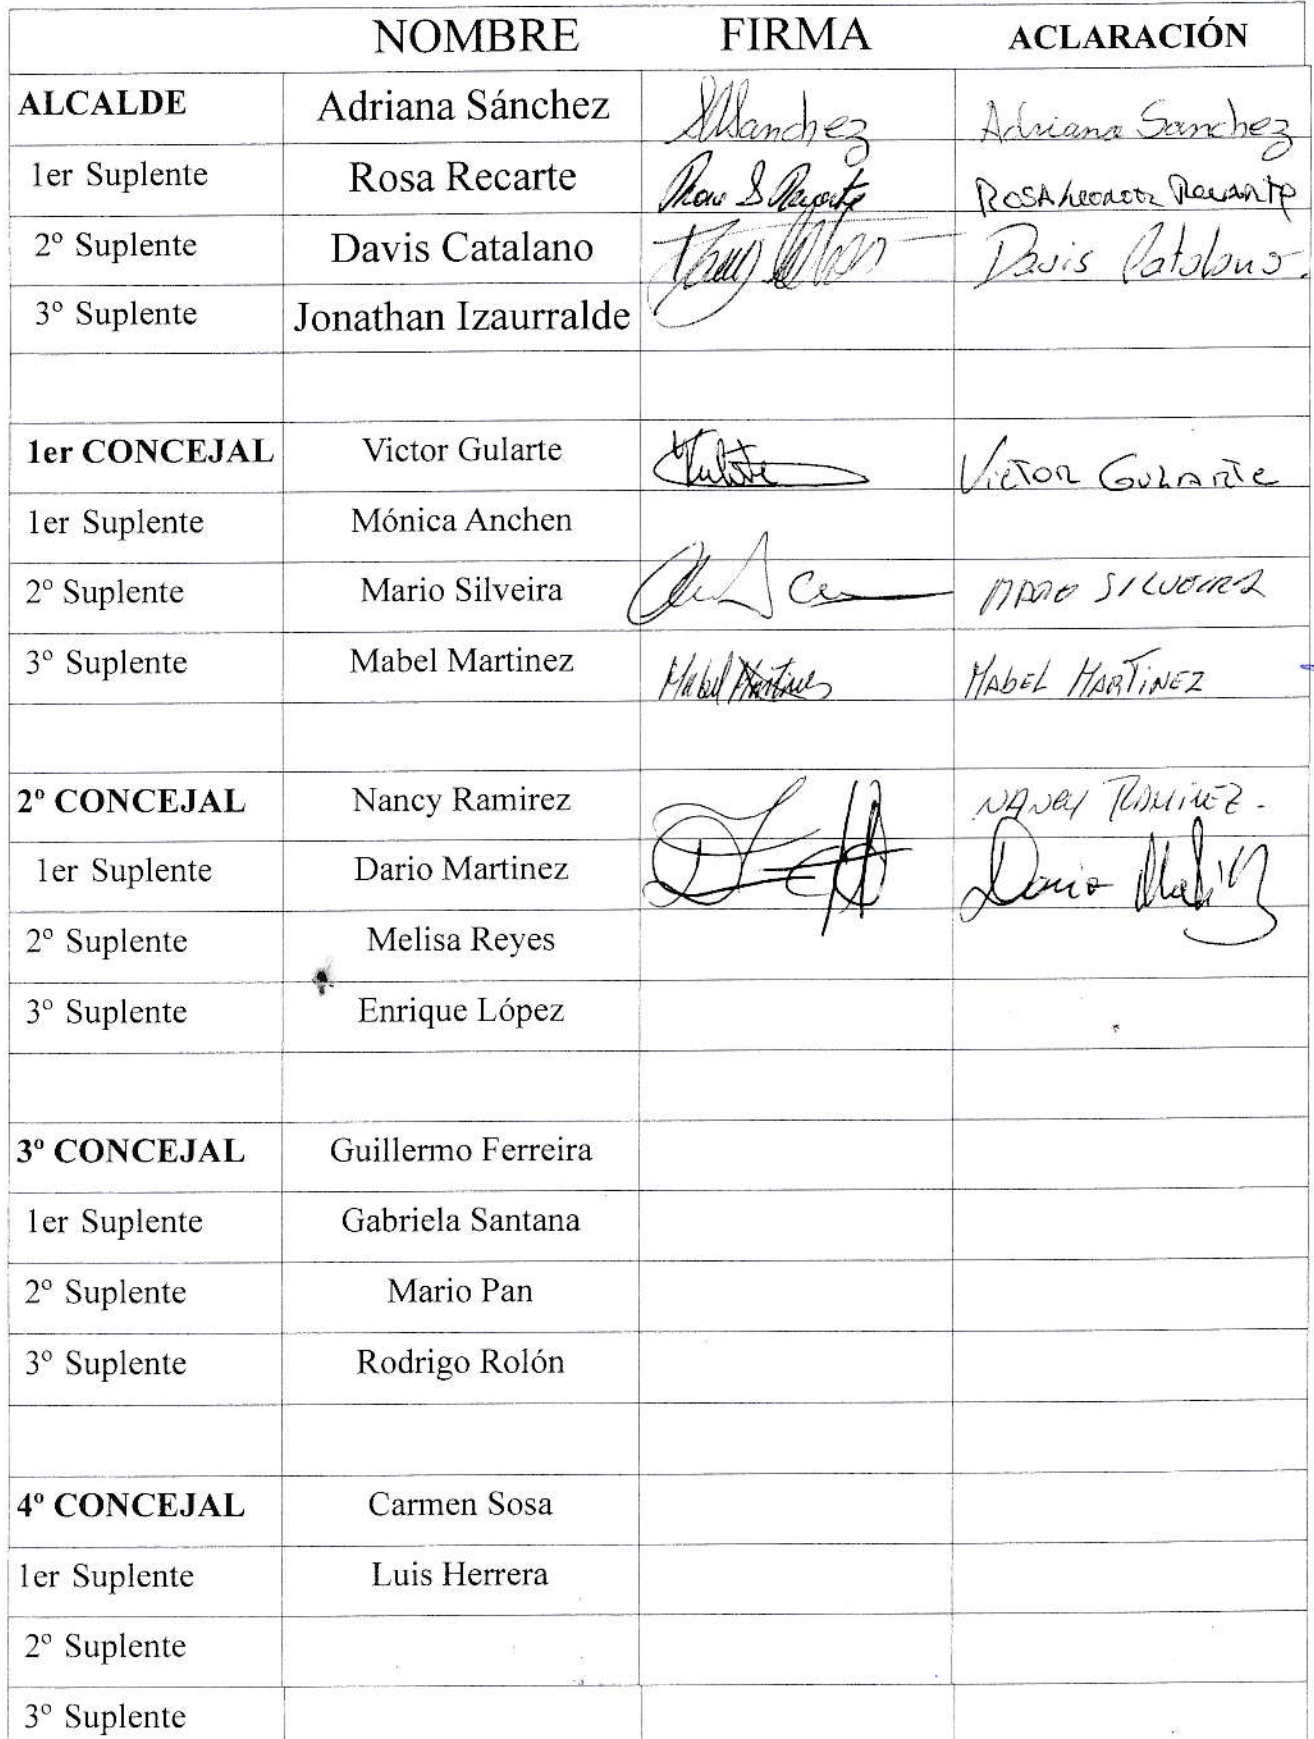 NOMBRE FIRMA ACLARACIÓN
ALCALDE Adriana Sánchez Sanchez Adriana Sanchez
1er Suplente Rosa Recarte Rosa S Recarte ROSA Recarte
2º Suplente Davis Catalano Davis Catalano.
3º Suplente Jonathan Izaurralde
1er CONCEJAL Victor Gularte VICTOR GULARTE
1er Suplente Mónica Anchen
2º Suplente Mario Silveira MARIO SILVEIRA
3º Suplente Mabel Martinez Mabel Martines MABEL MARTINEZ
2º CONCEJAL Nancy Ramirez NANCY RAMIREZ.
1er Suplente Dario Martinez Dario
2º Suplente Melisa Reyes
3º Suplente Enrique López
3º CONCEJAL Guillermo Ferreira
1er Suplente Gabriela Santana
2º Suplente Mario Pan
3º Suplente Rodrigo Rolón
4º CONCEJAL Carmen Sosa
1er Suplente Luis Herrera
2º Suplente
3º Suplente